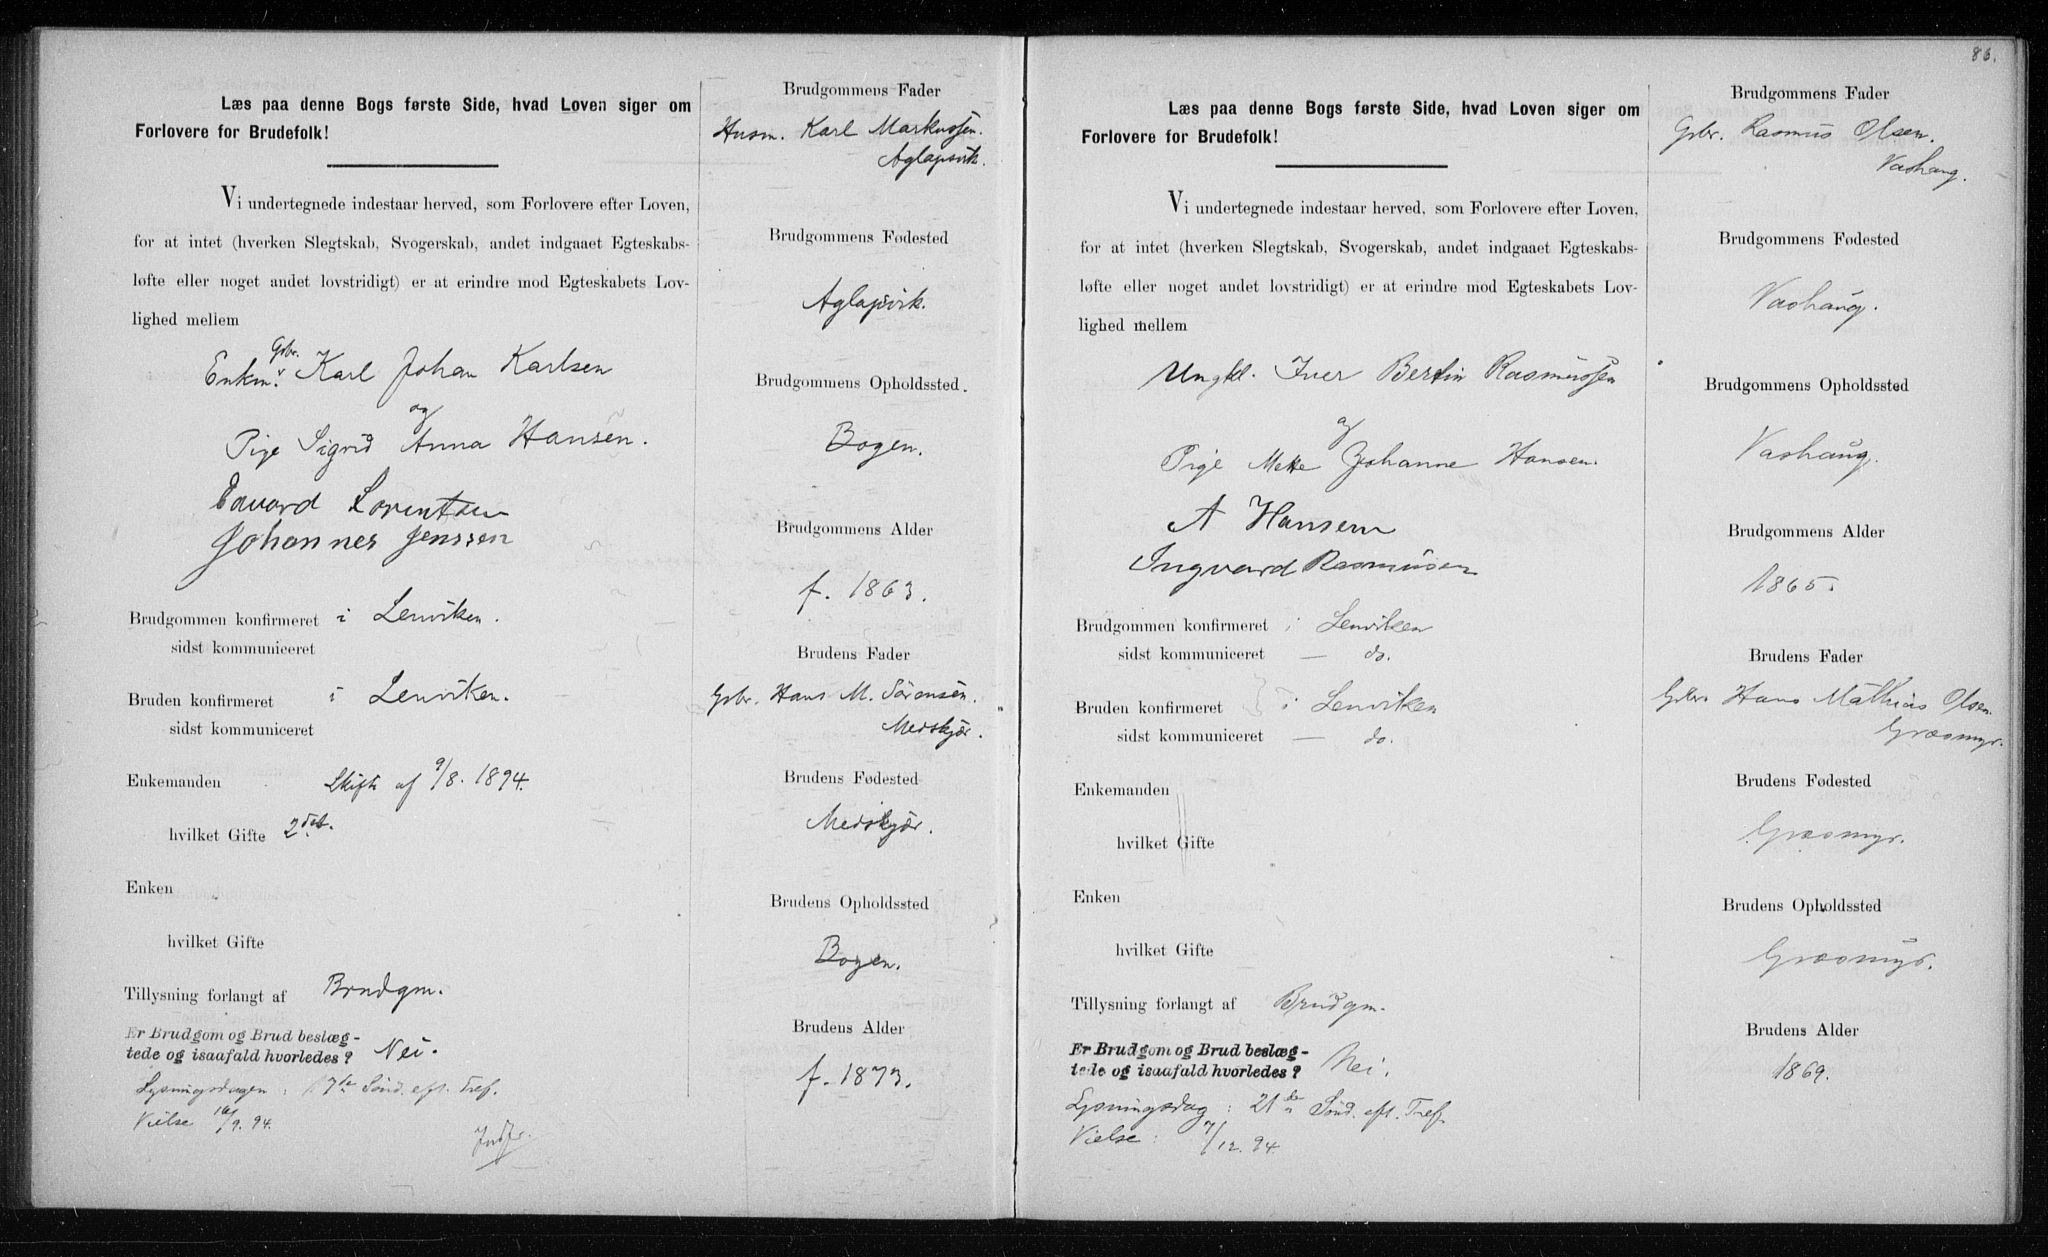 Læs paa denne Bogs første Side, hvad Loven siger om
Forlovere for Brudefolk!
Vi undertegnede indestaar herved, som Forlovere efter Loven,
for at intet (hverken Slegtskab, Svogerskab, andet indgaaet Egteskabs-
løfte eller noget andet lovstridigt) er at erindre mod Egteskabets Lov-
lighed mellem
Gbr.
Enkm. Karl Johan Karlsen
og
Pige Sigrid Anna Hansen.
Edvard Lorentsen
Johannes Jenssen
Brudgommen konfirmeret i Lenviken.
sidst kommuniceret
Bruden konfirmeret i Lenviken.
sidst kommuniceret
Enkemanden Skifte af 9/8. 1894.
hvilket Gifte 2det.
Enken
hvilket Gifte
Tillysning forlangt af Brudgm.
Er Brudgom og Brud beslæg-
tede og isaafald hvorledes? Nei.
Lysningsdagen: 17de Sönd. eft. Tref.
Vielse 16/9. 94.
Indf.
Brudgommens Fader
Husm. Karl Markussen.
Aglapsvik.
Brudgommens Fødested
Aglapsvik.
Brudgommens Opholdssted.
Bogen.
Brudgommens Alder
f. 1863.
Brudens Fader
Gbr. Hans M. Sörensen.
Medskjær.
Brudens Fødested
Medskjær.
Brudens Opholdssted
Bogen.
Brudens Alder
f. 1873.
86.
Læs paa denne Bogs første Side, hvad Loven siger om
Forlovere for Brudefolk!
Vi undertegnede indestaar herved, som Forlovere efter Loven,
for at intet (hverken Slegtskab, Svogerskab, andet indgaaet Egteskabs-
løfte eller noget andet lovstridigt) er at erindre mod Egteskabets Lov-
lighed mellem
Ungkl. Iver Bertin Rasmussen
og
Pige Mette Johanne Hansen.
A Hansen
Ingvard Rasmusen
Brudgommen konfirmeret i Lenviken
sidst kommuniceret — do.
Bruden konfirmeret i Lenviken
sidst kommuniceret — do.
Enkemanden
hvilket Gifte
Enken
hvilket Gifte
Tillysning forlangt af Brudgm.
Er Brudgom og Brud beslæg-
tede og isaafald hvorledes? Nei.
Lysningsdag: 21de Sönd. eft. Tref.
Vielse: 7/12. 94.
Brudgommens Fader
Gbr. Rasmus Olsen.
Vashaug.
Brudgommens Fødested
Vashaug.
Brudgommens Opholdssted
Vashaug.
Brudgommens Alder
1865.
Brudens Fader
Gbr. Hans Mathias Olsen
Græsmyr.
Brudens Fødested
Græsmyr.
Brudens Opholdssted
Græsmyr.
Brudens Alder
1869.